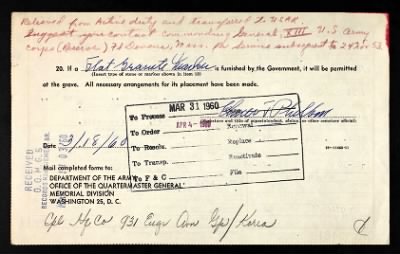 Released from Active duty and transferred to USAR.
Suggest you contact commanding General, XIII U.S. Army
Corps (Reserve) Ft Devens, Mass. for Service subsequent to
20. If a Flat Granite Marker is furnished by the Government, it will be permitted
(Insert type of stone or marker shown in Item 12)
at the grave. All necessary arrangements for its placement have been made.
MAR 31 1960
To Process
(Signature and title of superintendent, or other cemetery official)
To Order APR 4- 1960 Renewal
Date 3/18/60
To Resche. Replace
To Transp. Reactivate
To F & C File
RECEIVED
Mail completed forms to:
DEPARTMENT OF THE ARMY
OFFICE OF THE QUARTERMASTER GENERAL
MEMORIAL DIVISION
WASHINGTON 25, D. C.
Cpl Hq Co 931 Engr Avn Gp / Korea